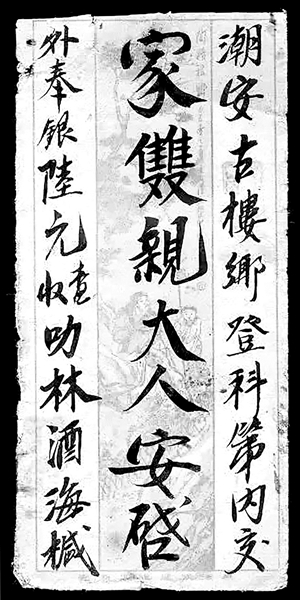 潮安古樓鄉登科第內交
家雙親大人安啓
外奉銀陸元查收叻林酒海椷